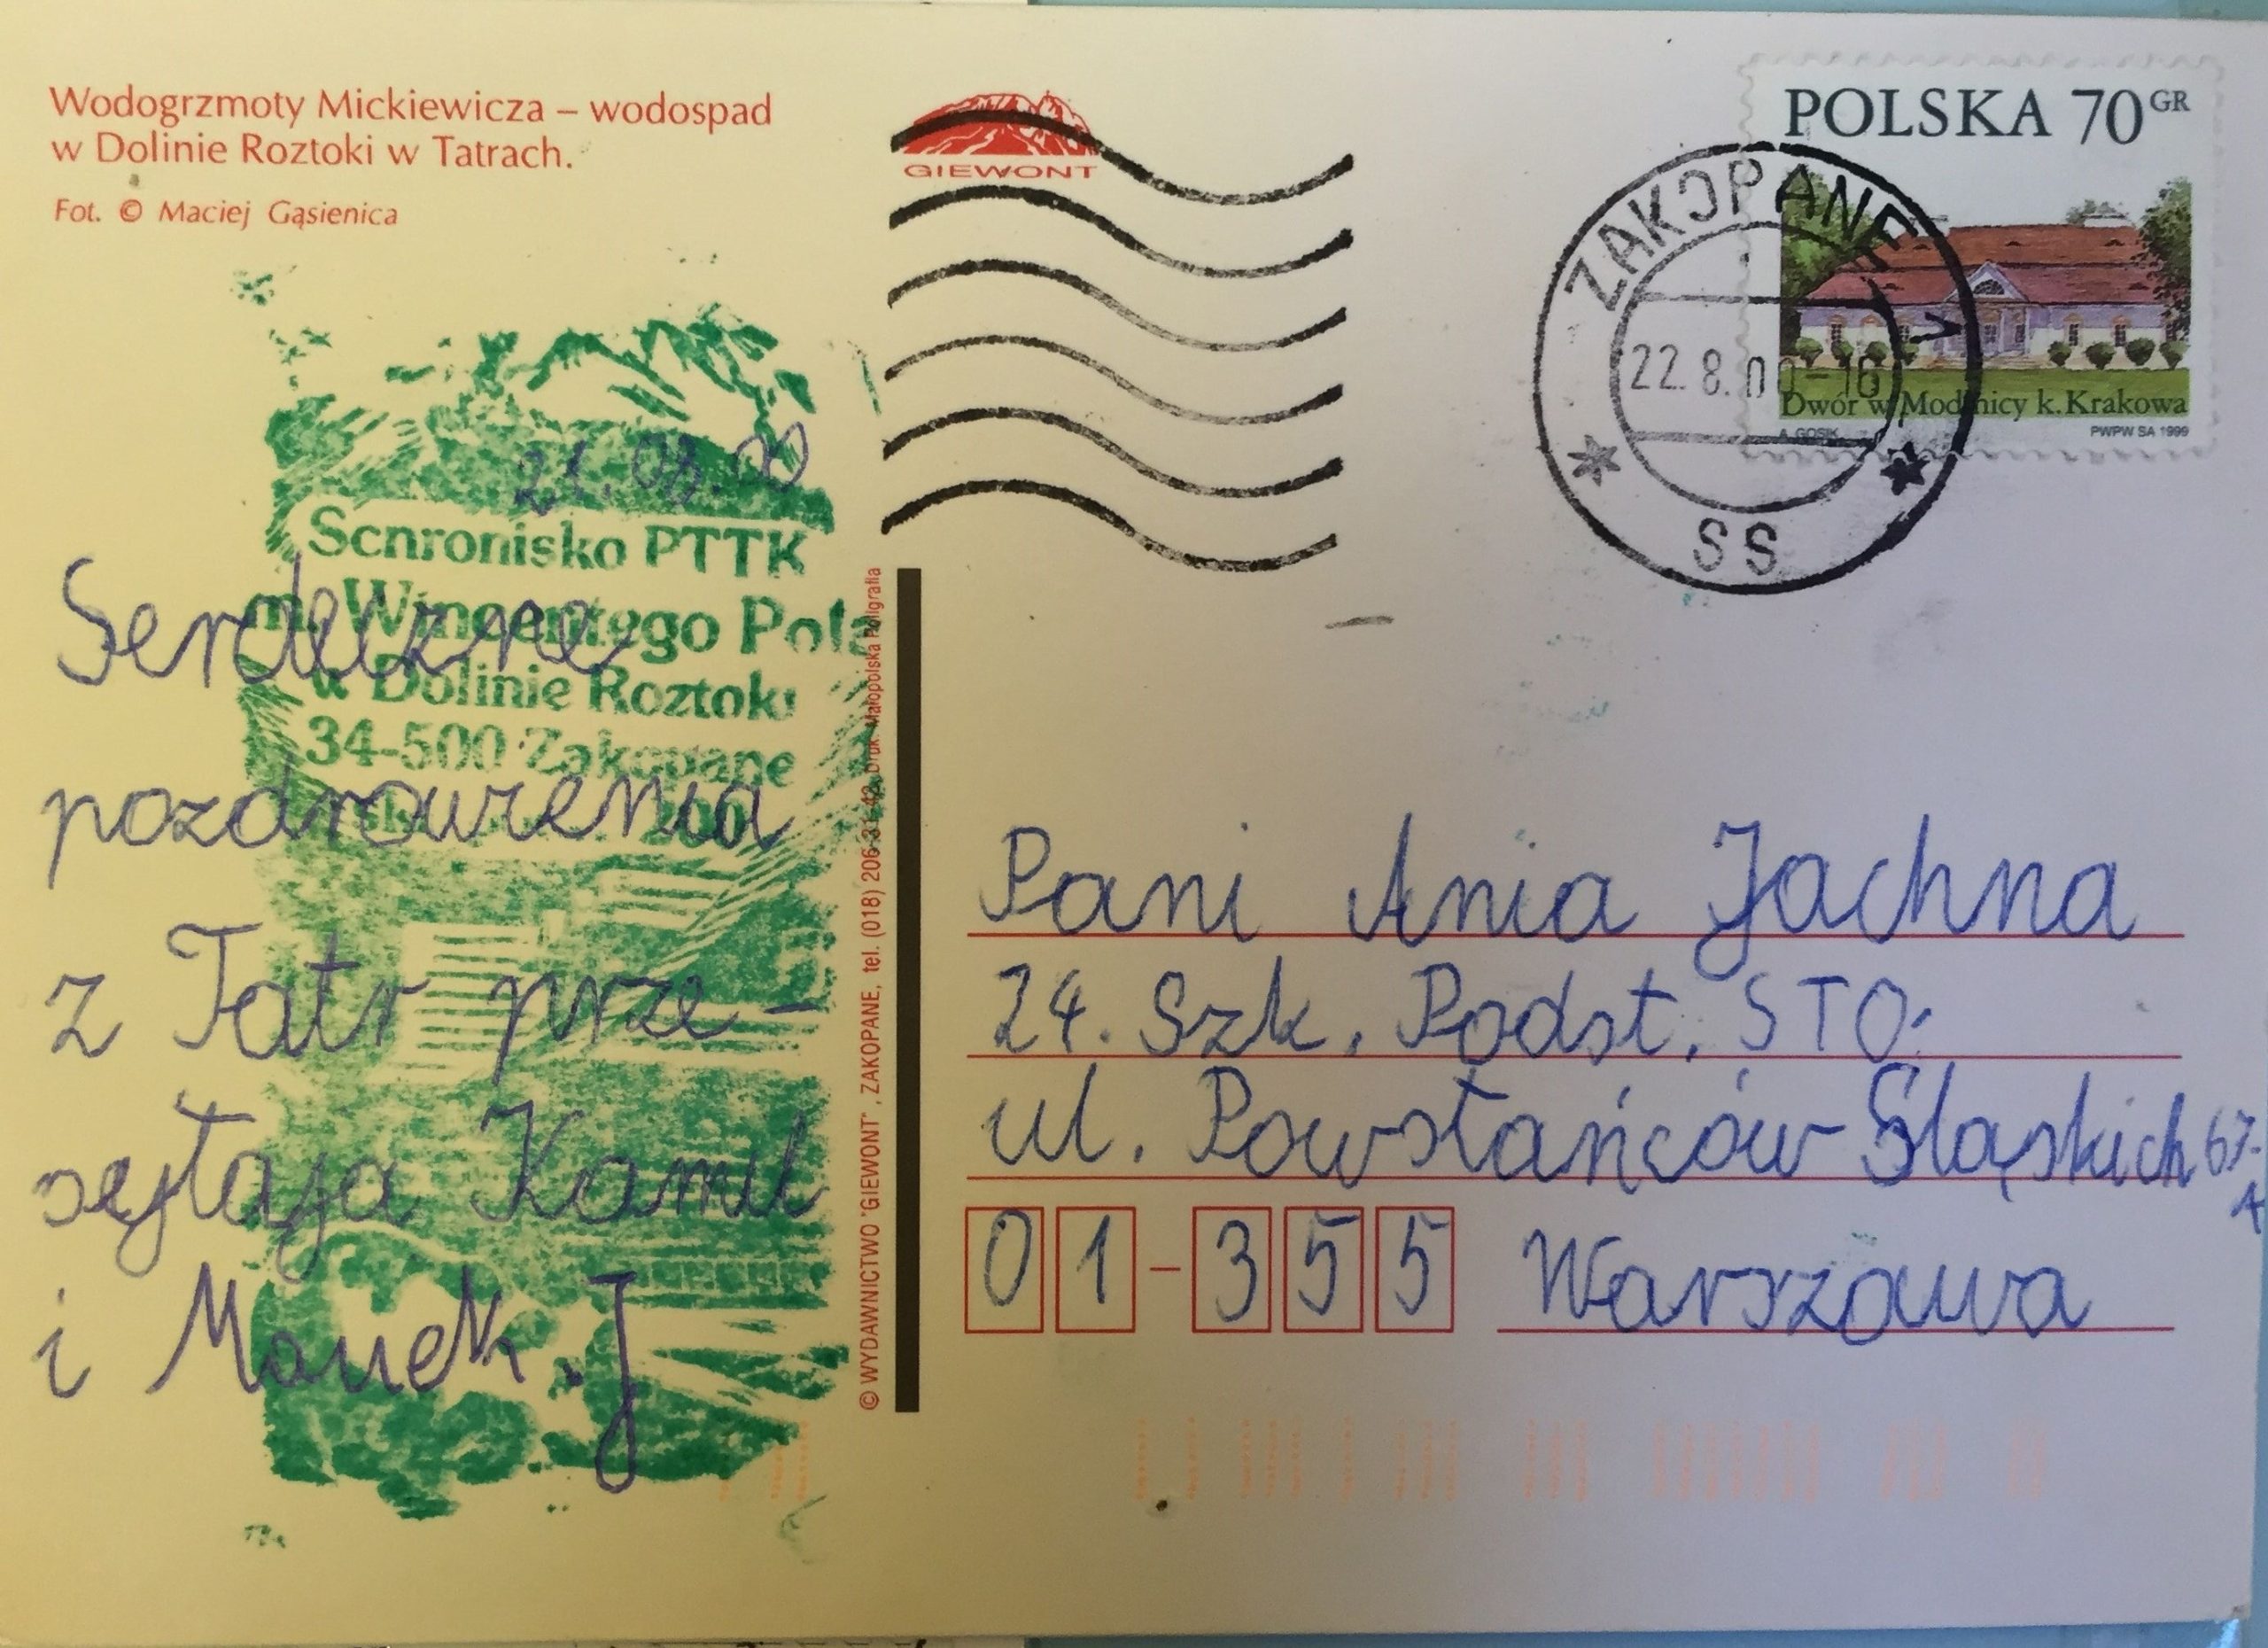 Wodogrzmoty Mickiewicza – wodospad
w Dolinie Roztoki w Tatrach.
Fot. © Maciej Gąsienica
GIEWONT
POLSKA 70 GR
Dwór w Modlnicy k. Krakowa
A. GOSIK
PWPW SA 1999
ZAKOPANE
22.8.00-16
SS
21.08.00
Schronisko PTTK
im. Wincentego Pola
w Dolinie Roztoki
34-500 Zakopane
Serdeczne
pozdrowienia
z Tatr prze-
syłają Kamil
i Maciek. J
© WYDAWNICTWO "GIEWONT", ZAKOPANE, tel. (018) 206-31-42, Druk: Małopolska Poligrafia
Pani Ania Jachna
24. Szk. Podst. STO.
ul. Powstańców Śląskich 67-
A
01-355 Warszawa